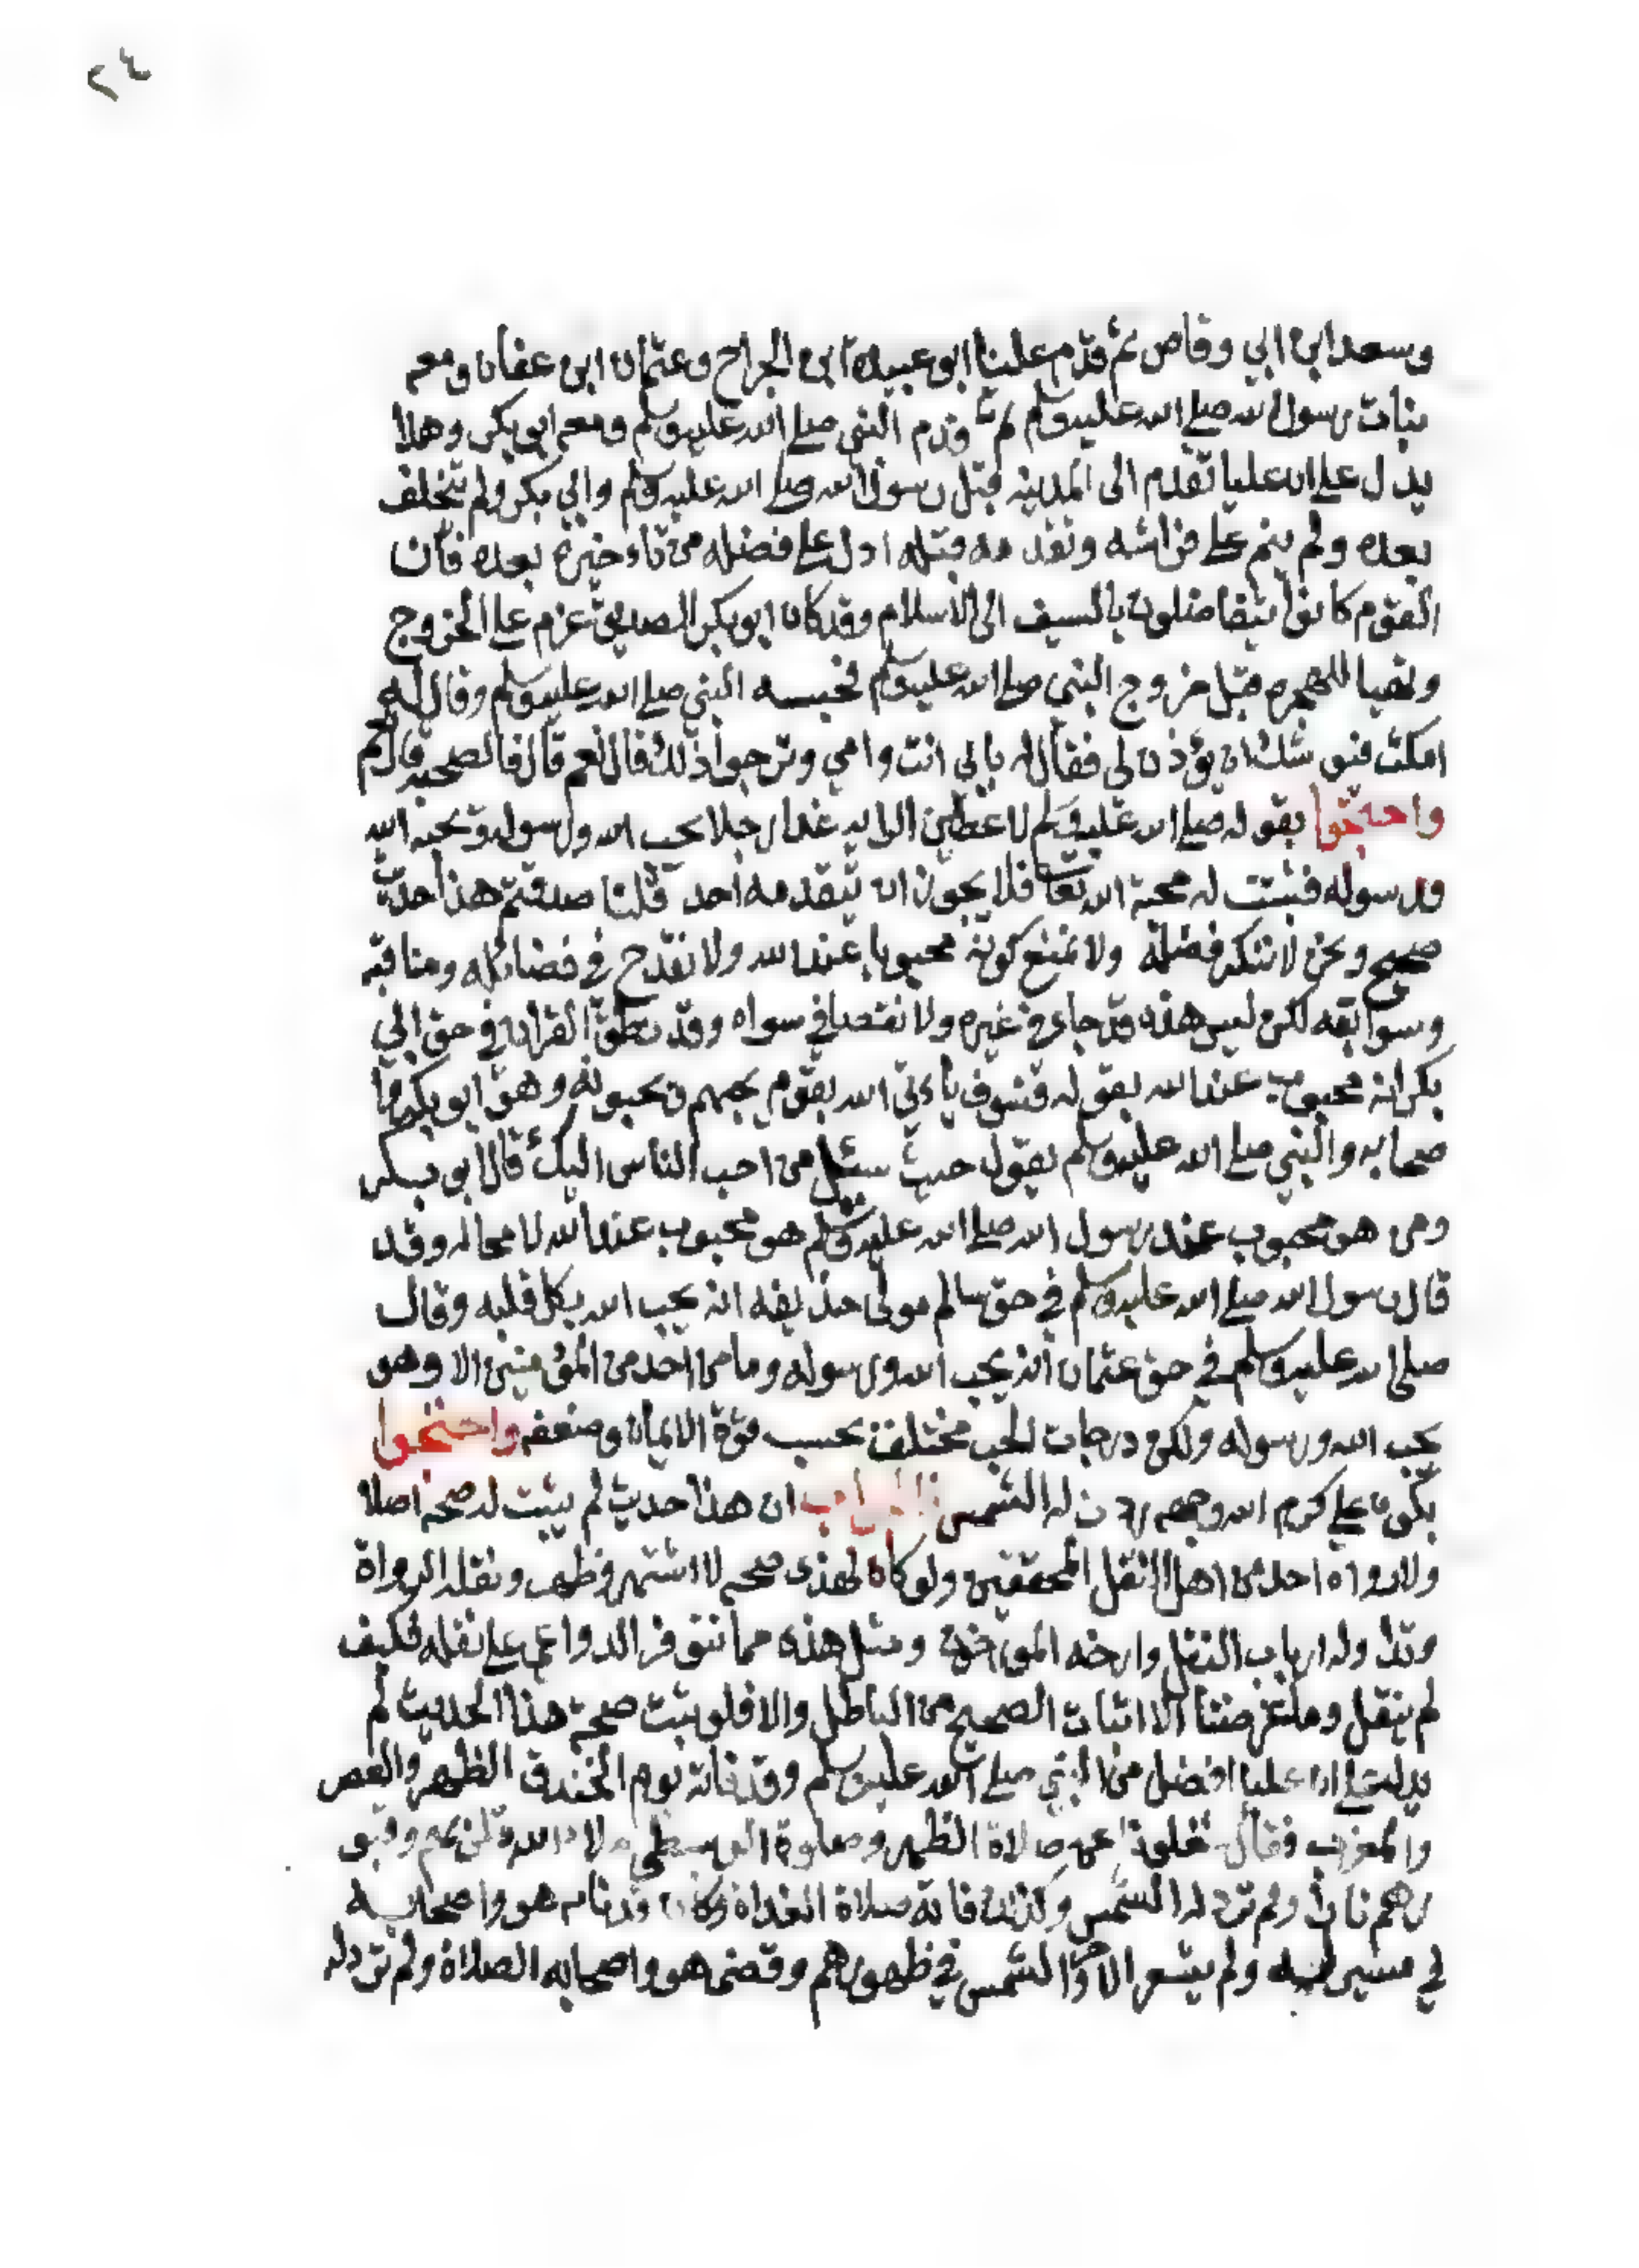 ٢٤
وسعد ابن ابي وقاص ثم قدم علينا ابو عبيدة ابن الجراح وعثمان ابن عفان ومعه
بنات رسول الله صلى الله عليه وسلم ثم قدم النبي صلى الله عليه وسلم ومعه ابو بكر وهذا
يدل على ان عليا تقدم الى المدينه قبل رسول الله صلى الله عليه وسلم وابي بكر ولم يتخلف
بعده ولم ينم على فراشه وتقدمه قبله ادل على فضله من تاءخيره بعده فان
القوم كانوا يتفاضلون بالسيف الى الاسلام وقد كان ابو بكر الصديق عزم على الخروج
وتهيا للهجره قبل خروج النبي صلى الله عليه وسلم فحبسه النبي صلى الله عليه وسلم وقال له
امكث فيوشك ان يؤذن لي فقال له بابي انت وامي وترجوا ذلك قال نعم قال فالصحبه قال نعم
واحتجوا بقوله صلى الله عليه وسلم لاعطين الرايه غدا رجلا يحب الله ورسوله ويحبه الله
ورسوله فثبتت له محبة الله تعالى فلا يجوز ان يتقدمه احد قلنا صدقتم هذا حديث
صحيح ونحن لا ننكر فضله ولا نمنع كونه محبوبا عند الله ولا نقدح في فضائله ومناقبه
وسوابقه لكن ليس هذه قد جاء في غيره ولا نقصا في سواه وقد نطق القران في حق ابي
بكر انه محبوب عند الله بقوله فسوف ياءتي الله بقوم يحبهم ويحبونه وهو ابو بكر
صحابه والنبي صلى الله عليه وسلم يقول حيث سئل من احب الناس اليك قال ابو بكر
ومن هو محبوب عند رسول الله صلى الله عليه وسلم هو محبوب عند الله لا محاله وقد
قال رسول الله صلى الله عليه وسلم في حق سالم مولى حذيفه انه يحب الله بكل قلبه وقال
صلى الله عليه وسلم في حق عثمان انه يحب الله ورسوله وما من احد من المؤمنين الا وهو
يحب الله ورسوله ولكن درجات الحب مختلفة بحسب قوة الايمان وضعفه واحتجوا
بكون علي كرم الله وجهه ردت له الشمس الجواب ان هذا حديث لم يثبت له صحه اصلا
ولا رواه احد من اهل النقل المحققين ولو كان لهذى صحه لا اشتهر وظهر ونقله الرواة
وتداوله ارباب النقل وارخه المورخون ومثل هذه مما تتوفر الدواعي على نقله فكيف
لم ينقل وما غرضنا الا اثبات الصحيح من الباطل والا فلو ثبت صحة هذا الحديث لم
يدل على ان عليا افضل من النبي صلى الله عليه وسلم وقد فاته يوم الخندق الظهر والعصر
والمغرب فقال شغلونا عن صلاة الظهر وصلوة الوسطى ملاء الله
نارا ولم ترد له الشمس وكذلك فاته صلاة الغداة وكان قد نام هو واصحابه
في مسير له ولم يشعر الا والشمس في ظهورهم وقضى هو واصحابه الصلاة ولم ترد له